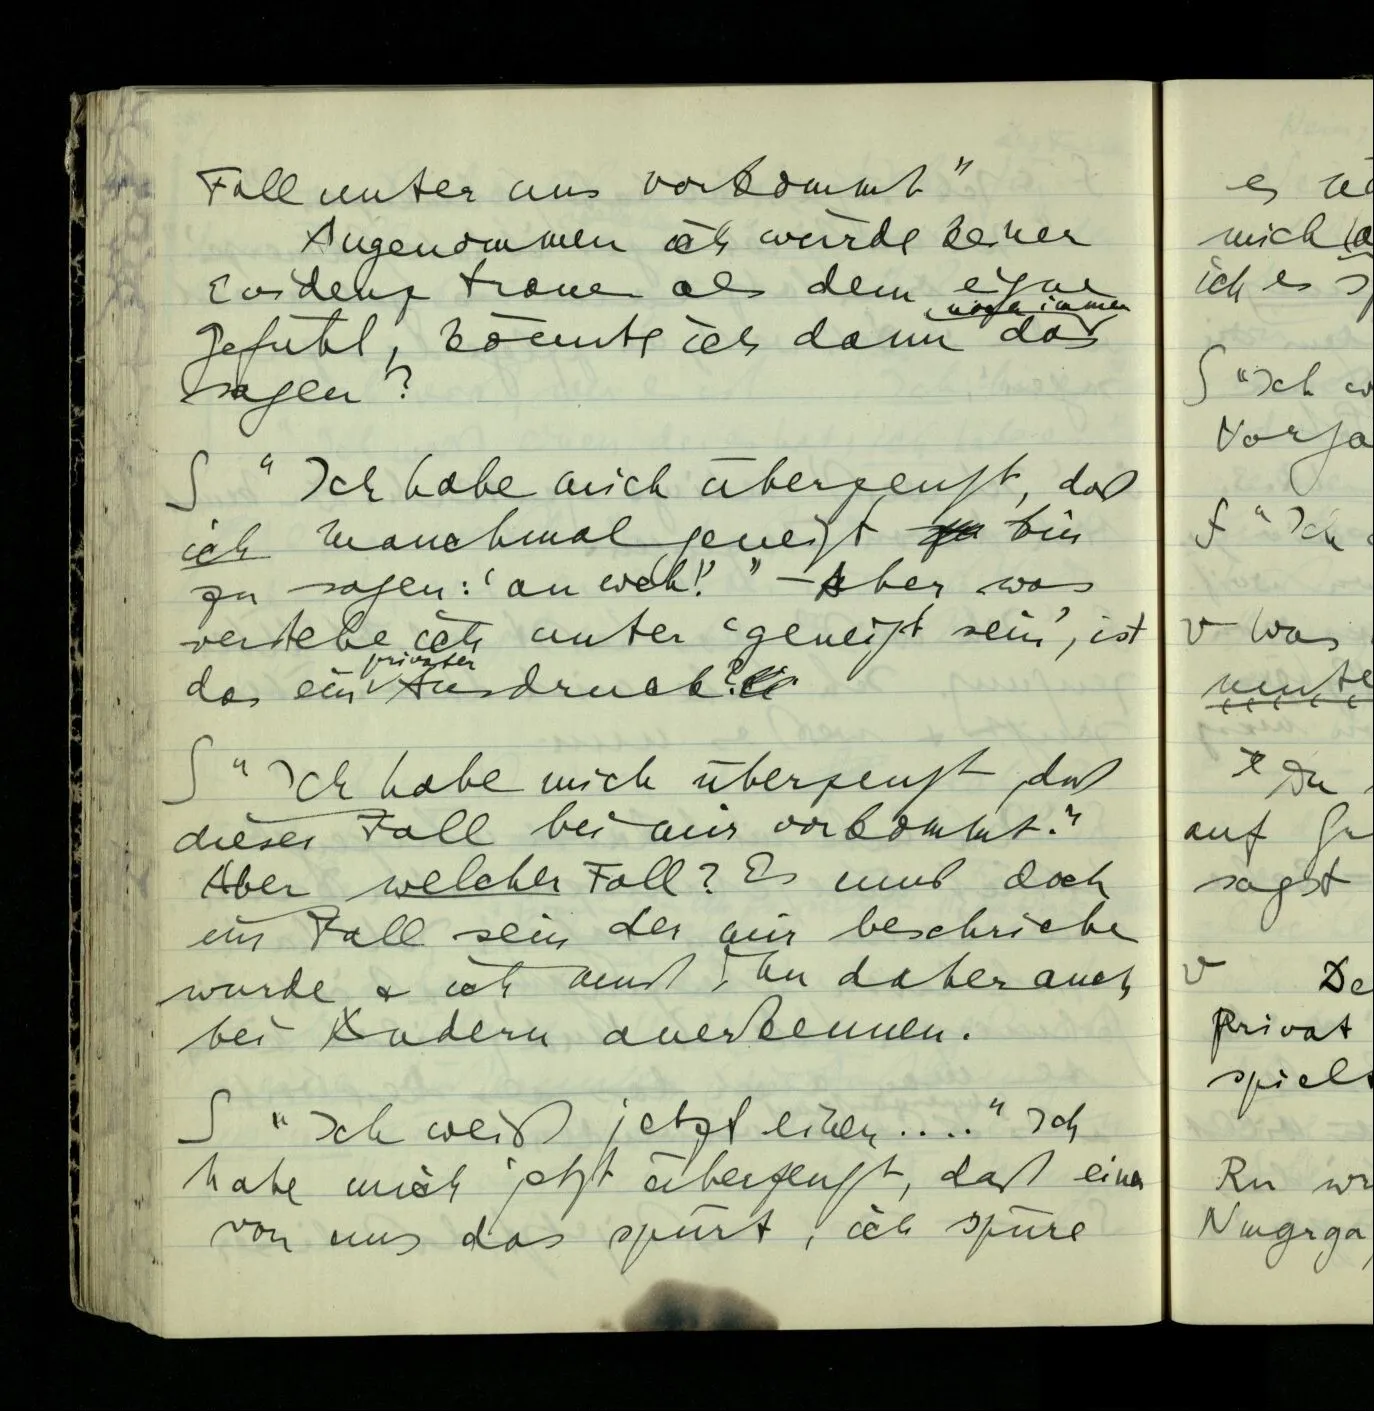 Fall unter uns vorkommt"
Angenommen ich würde keiner
Evidenz trauen als dem eigne
noch immer
Gefühl, könnte ich dann das
sagen?
∫ " Ich habe mich überzeugt, daß
ich manchmal geneigt bin
zu sagen: 'au weh!' " – Aber was
verstehe ich unter 'geneigt sein', ist
privater
das ein Ausdruck?
∫ "Ich habe mich überzeugt daß
dieser Fall bei mir vorkommt."
Aber welcher Fall? Es muß doch
ein Fall sein der mir beschriebe
wurde & ich muß ihn daher auch
bei Andern anerkennen.
∫ "Ich weiß jetzt einen...." Ich
habe mich jetzt überzeugt, daß einer
von uns das spürt, ich spüre
es
mich
ich es
∫ "Ich w
∫ "Ich
v Was
unte
Du
auf
sagst
v De
Privat
spiel